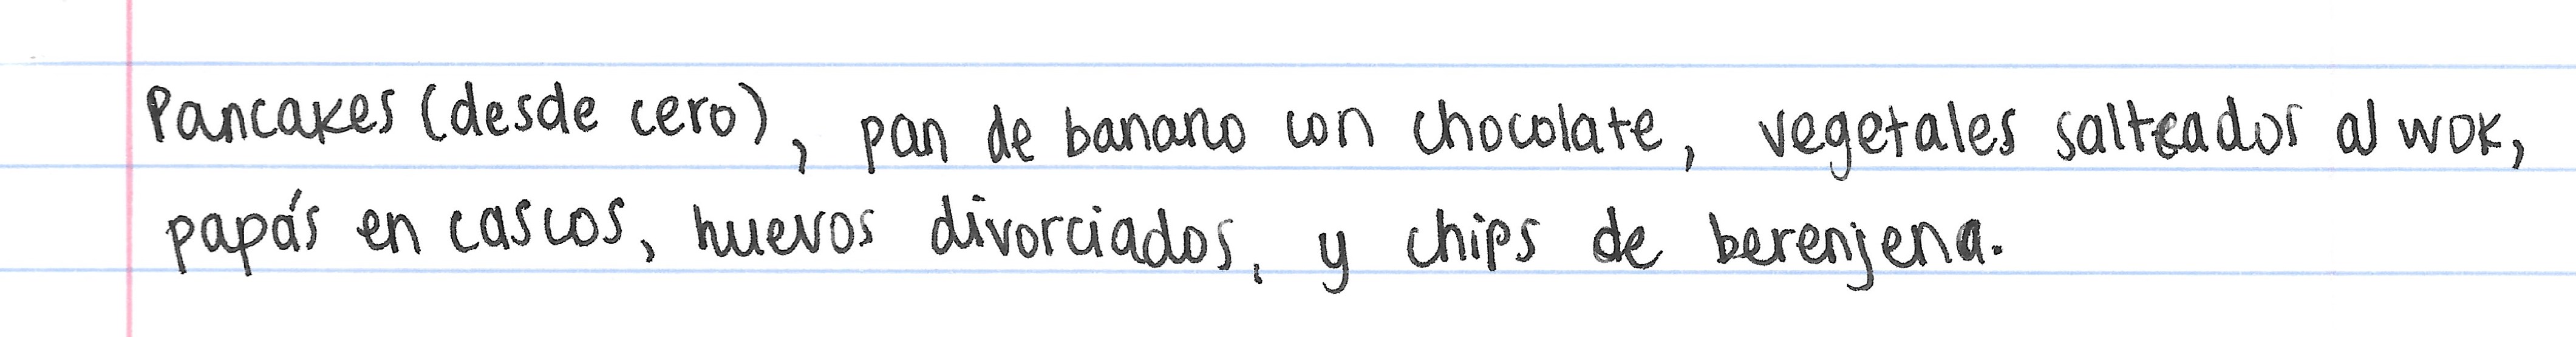 Pancakes (desde cero), pan de banano con chocolate, vegetales salteados al wok,
papás en cascos, huevos divorciados, y chips de berenjena.